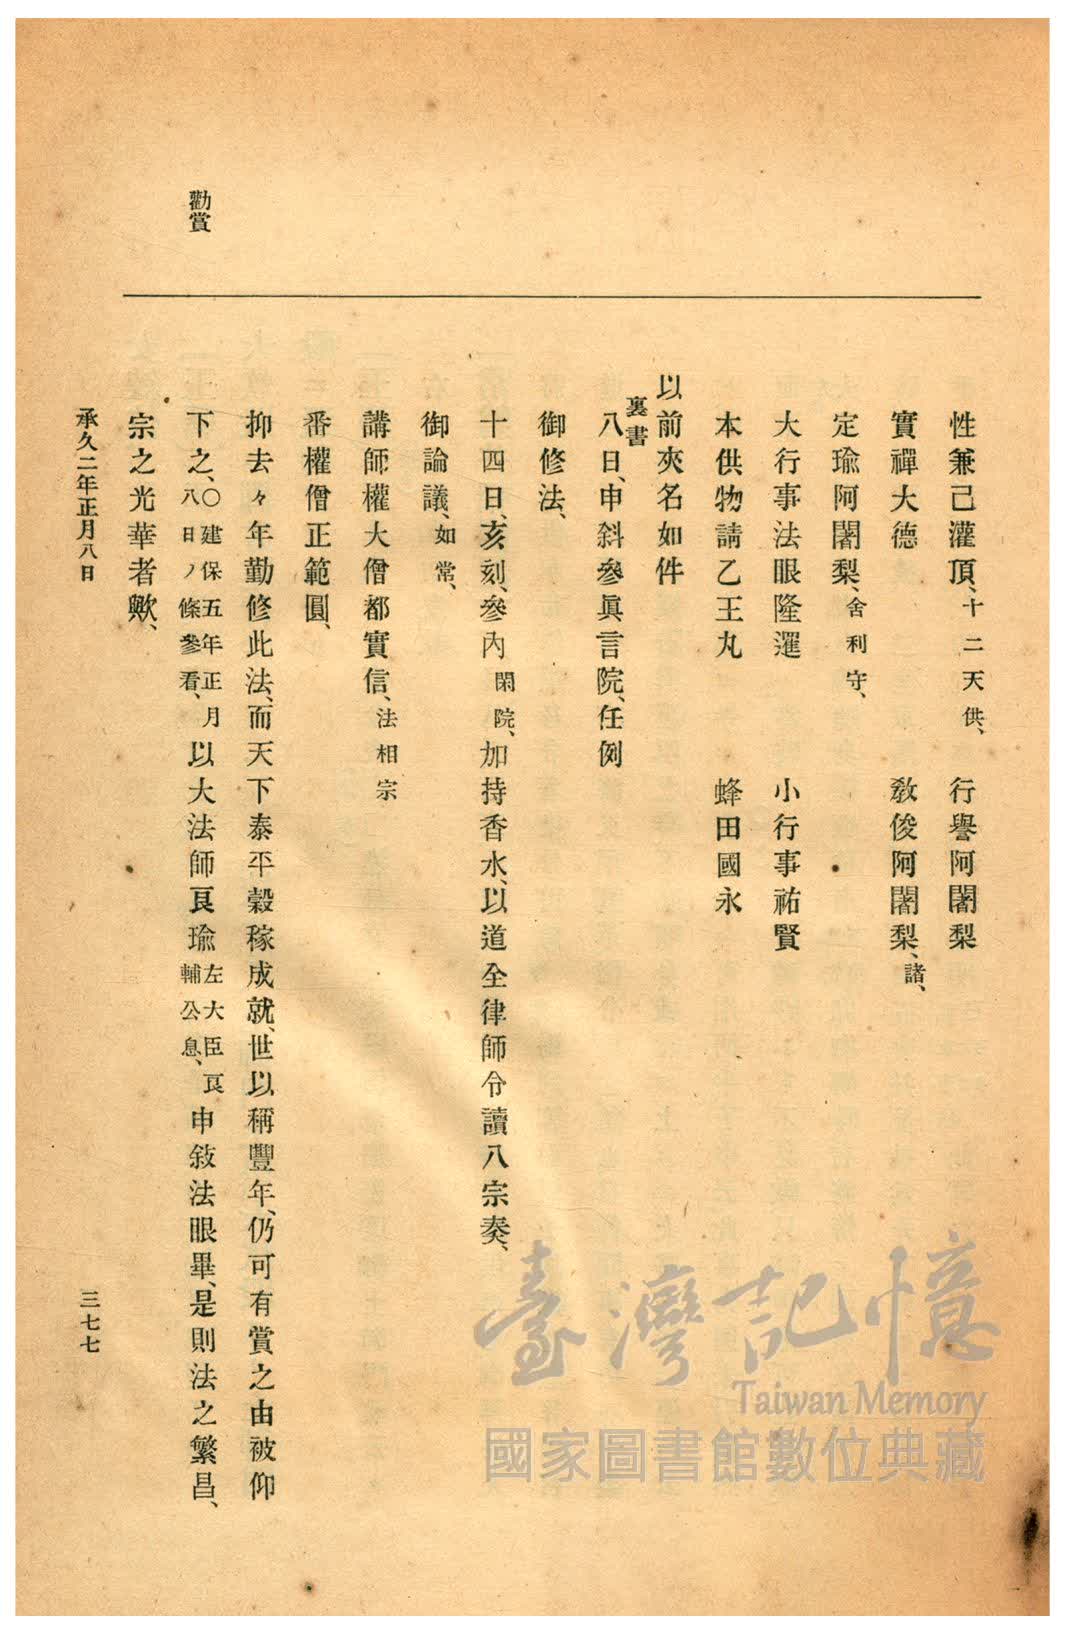 性兼己灌頂、十二天供、　行譽阿闍梨
實禪大德　敎俊阿闍梨、諸、
定瑜阿闍梨、舍利守、
大行事法眼隆暹　小行事祐賢
本供物請乙王丸　蜂田國永
以前夾名如件
裏書
八日、申斜參眞言院、任例
御修法、
十四日、亥刻、參內閑院、加持香水、以道全律師令讀八宗奏、
御論議、如常、
講師權大僧都實信、法相宗
番權僧正範圓、
抑去々年勤修此法、而天下泰平穀稼成就、世以稱豐年、仍可有賞之由被仰
下之、〇建保五年正月八日ノ條參看、以大法師良瑜左大臣良輔公息、申敍法眼畢、是則法之繁昌、
宗之光華者歟、
勸賞
承久二年正月八日
三七七
臺灣記憶
Taiwan Memory
國家圖書館數位典藏